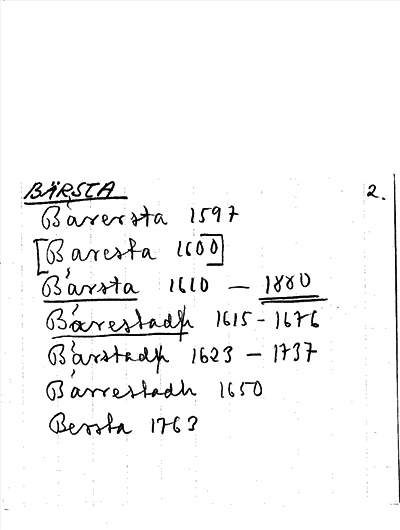 BÄRSTA 2.
Bårersta 1597
[Baresta 1600]
Bårsta 1610 — 1880
Bårestadh 1615 - 1676
Bårstadh 1623 — 1737
Bårrestadh 1650
Bersta 1763